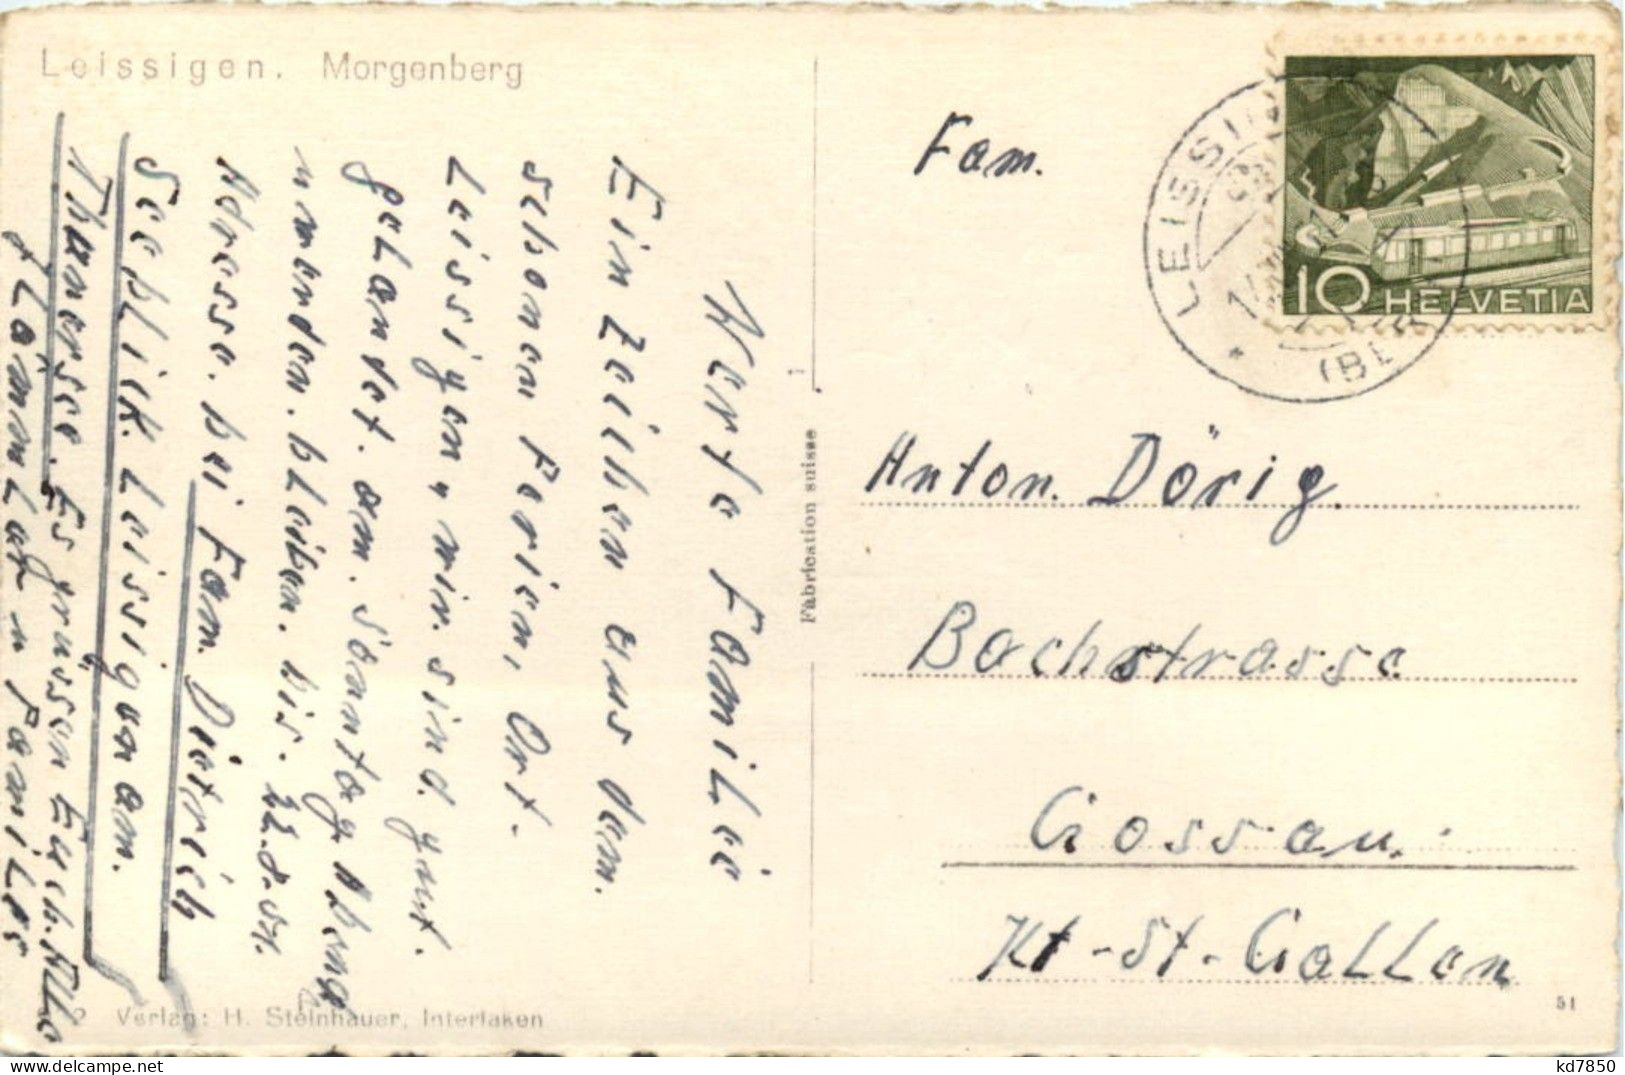 Leissigen. Morgenberg
Werte Familie
Ein Zeichen aus dem.
schonen Ferien, Ort.
Leissigen, wir. sind. gut.
gelandet. am. Sontag Abend
u werden. bleiben. bis. 22.8.51.
Adresse. bei Fam. Dietrich
Seeblick. Leissigen am.
Thunersee. Es grüssen Euch. Alle
u Familes
Fabrication suisse
Fam.
Anton. Dörig.
Bachstrasse
Gossau.
Kt-St-Gallen
LEISSIGEN
(BERN)
10 HELVETIA
2 Verlag: H. Steinhauer, Interlaken
51
kd7850